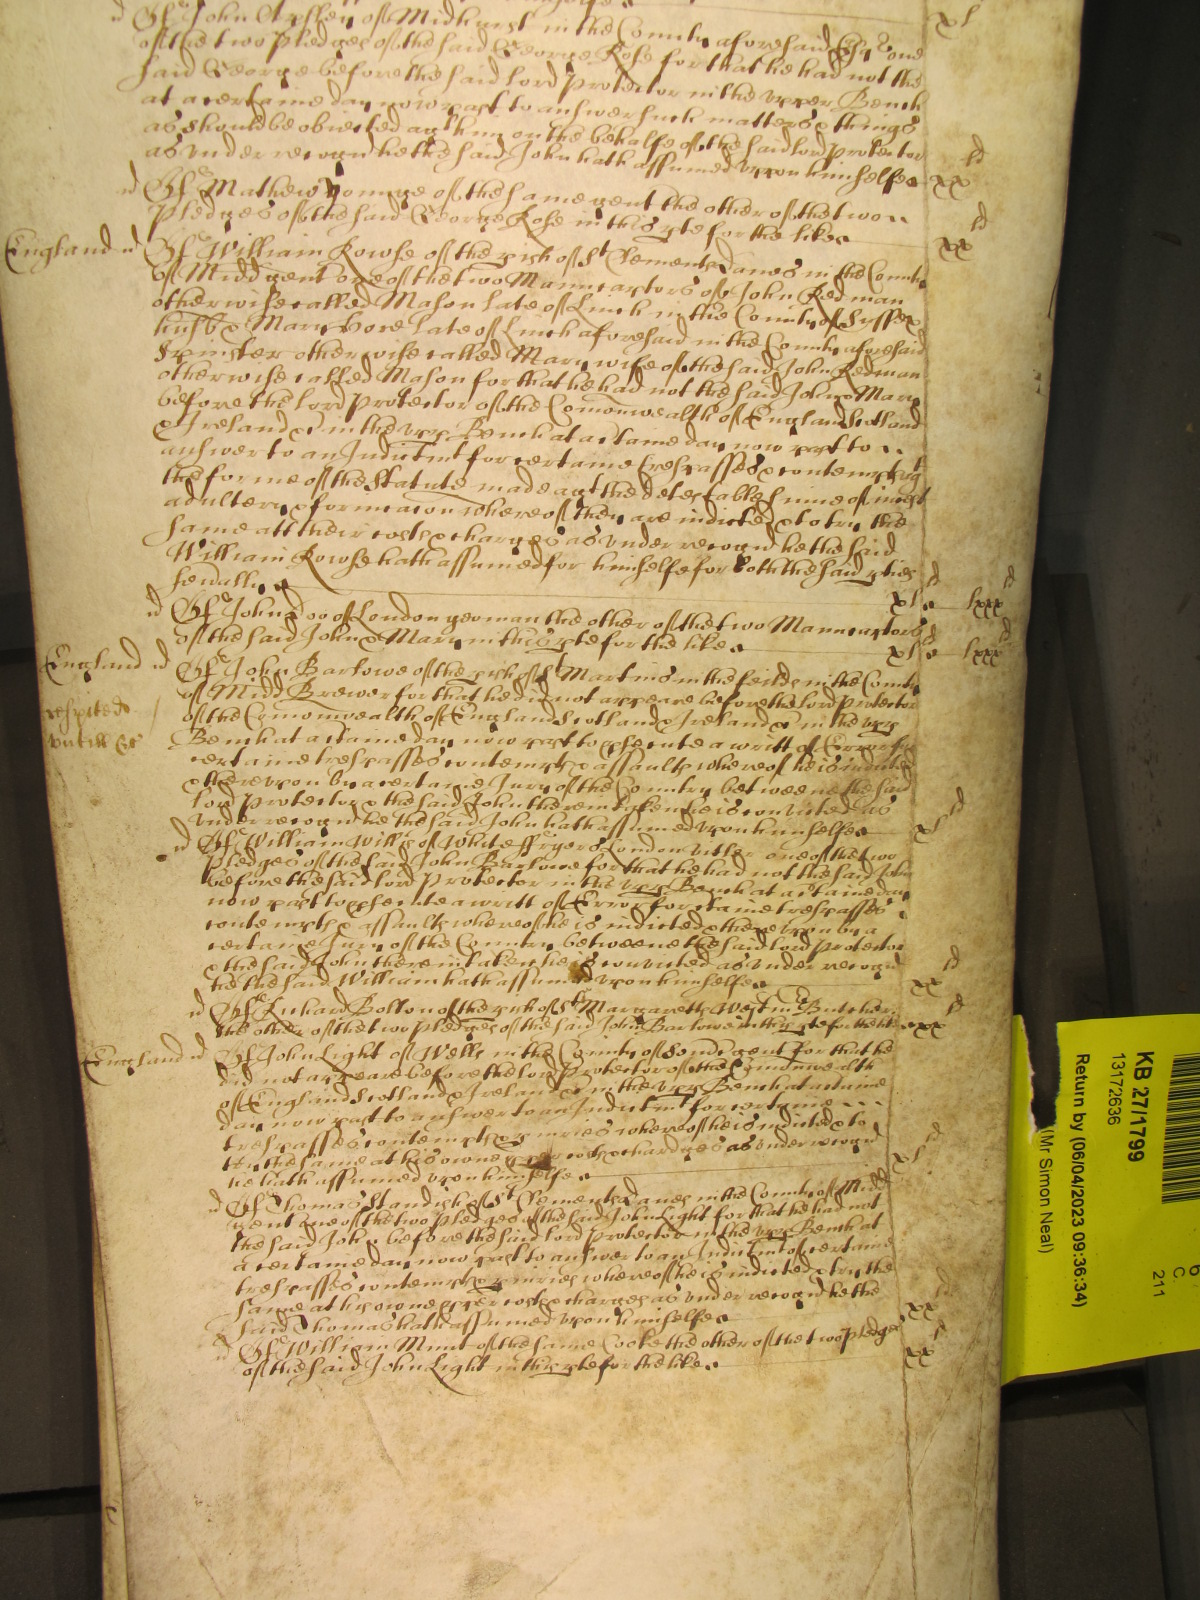 Of John Apsley of Midhurst in the County aforesaid Esqr one xl
of the two pledges of the said George Rose for that he had not the
said George before the said lord Protector in the upper Bench
at a certaine day now past to answer such matters & things
as should be obiected agt him on the behalfe of the said lord Protector
as under recogn he the said John hath assumed upon himselfe xx ld
Of Mathew of the same gent the other of the two
pledges of the said George Rose in this pte for the like xx ld
England Of William Rowse of the pish of St Clements Danes in the County
of Midd gent one of the two Manucaptors of John Redman
otherwise called Mason late of Linch in the County of Sussex
husb & Mary late of Linch aforesaid in the County aforesaid
Spinster otherwise called Mary wife of the said John Redman
otherwise called Mason for that he had not the said John & Mary
before the lord Protector of the Comonwealth of England Scotland
& Ireland & in the upp Bench at a ctaine day now past to
answer to an Indictmt for certaine trespasses & contempts agt
the forme of the Statute made agt the detestable sinne of incest
adultery & fornicacon whereof they are indicted & to try the
same att their costs & charges as under recogn he the said
William Rowse hath assumed for himselfe for both the said pties
sevally xl ld lxxx ld
Of John Doo of London yeoman the other of the two Manucaptors
of the said John & Mary in this pte for the like xl lxxx
England Of John Barlowe of the pish of St Martins in the feilds in the County
of Midd Brewer for that he did not appeare before the lord Protector
respited of the Comonwealth of England Scotland & Ireland & in the upp
untill &c Bench at a ctaine day now past to psecute a writt of Error for
certaine trespasses contempts & assaults whereof he is indicted
& thereupon by a certaine Jury of the Country betweene the said
lord Protector & the said John therein taken he is convicted as
under recogn he the said John hath assumed upon himselfe xl ld
Of William Wills of White ffryers London one of the two
pledges of the said John Barlowe for that he had not the said John
before the said lord Protector in the upp Bench at a ctaine day
now past to psecute a writt of Error for ctaine trespasses
contempts & assaults whereof he is indicted & thereupon by a
certaine Jury of the Country betweene the said lord Protector
& the said John therein taken he is convicted as under recogn
he the said William hath assumed upon himselfe xx ld
Of Richard Bolton of the pish of St Margaretts Westm Butcher
the other of the two pledges of the said John Barlowe in this pte for the like xx
England Of John Light of Wells in the County of Somst gent for that he
did not appeare before the lord Protector of the Comonwealth
of England Scotland & Ireland & in the upp Bench at a ctaine
day now past to answer to an Indictmt for certaine
trespasses contempts & iniuries whereof he is indicted & to
try the same at his owne pper costs & chardges as under recogn
he hath assumed upon himselfe xl ld
Of Thomas Standish of St Clements Danes in the County of Midd
gent one of the two pledges of the said John Light for that he had not
the said John before the said lord Protector in the upp Bench at
a certaine day now past to answer to an Indictmt of certaine
trespasses contempts & iniuries whereof he is indicted & try the
same at his owne pper costs & charges as under recogn he the
said Thomas hath assumed upon himselfe xx ld
Of William Mint of the same Cooke the other of the two pledges
of the said John Light in this pte for the like xx
KB 27/1799
13172636
Return by (06/04/2023 09:36:34)
(Mr Simon Neal)
C
211